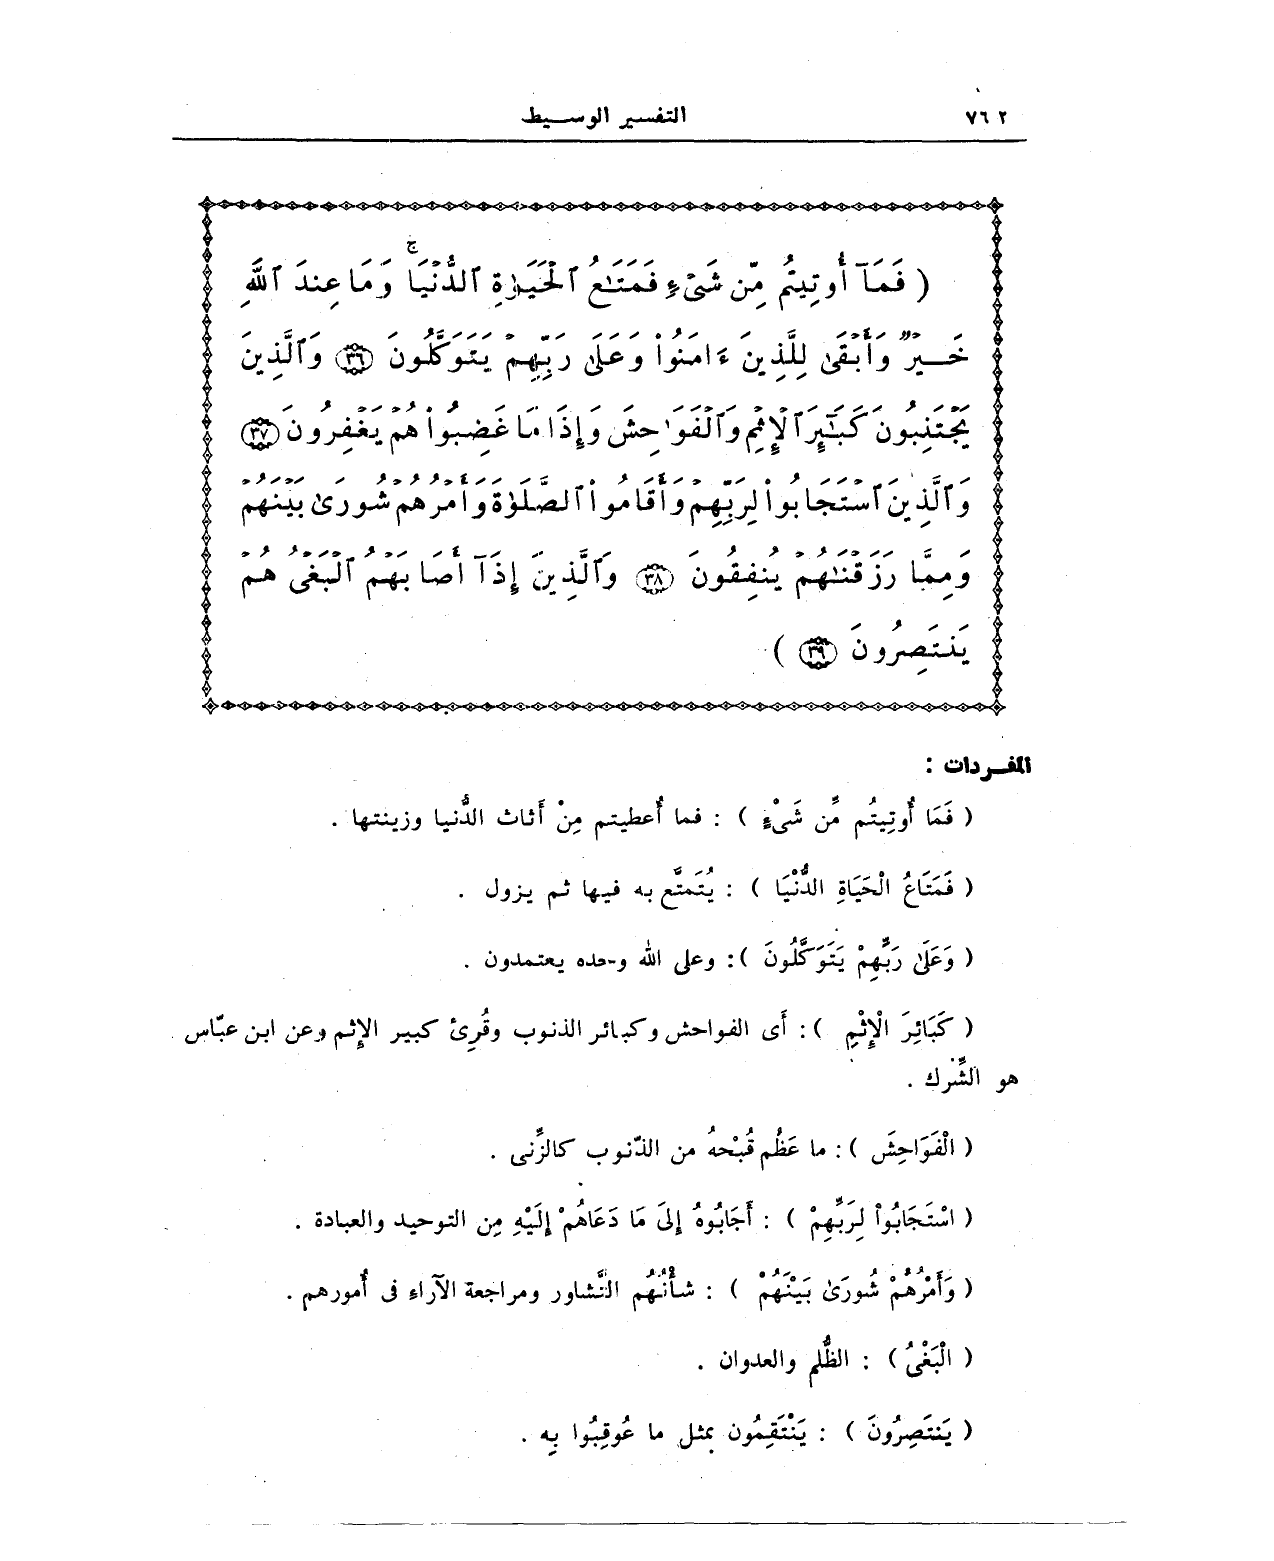 ٧٦٢
التفسير الوسيط
( فَمَآ أُوتِيتُم مِّن شَىْءٍ فَمَتَٰعُ ٱلْحَيَوٰةِ ٱلدُّنْيَا ۚ وَمَا عِندَ ٱللَّهِ
خَيْرٌ وَأَبْقَىٰ لِلَّذِينَ ءَامَنُوا۟ وَعَلَىٰ رَبِّهِمْ يَتَوَكَّلُونَ ٣٦ وَٱلَّذِينَ
يَجْتَنِبُونَ كَبَٰٓئِرَ ٱلْإِثْمِ وَٱلْفَوَٰحِشَ وَإِذَا مَا غَضِبُوا۟ هُمْ يَغْفِرُونَ ٣٧
وَٱلَّذِينَ ٱسْتَجَابُوا۟ لِرَبِّهِمْ وَأَقَامُوا۟ ٱلصَّلَوٰةَ وَأَمْرُهُمْ شُورَىٰ بَيْنَهُمْ
وَمِمَّا رَزَقْنَٰهُمْ يُنفِقُونَ ٣٨ وَٱلَّذِينَ إِذَآ أَصَابَهُمُ ٱلْبَغْىُ هُمْ
يَنتَصِرُونَ ٣٩ )
المفـردات :
( فَمَا أُوتِيتُم مِّن شَىْءٍ ) : فما أُعطيتم مِنْ أَثاث الدُّنيا وزينتها .
( فَمَتَاعُ الْحَيَاةِ الدُّنْيَا ) : يُتَمتَّع به فيها ثم يزول .
( وَعَلَىٰ رَبِّهِمْ يَتَوَكَّلُونَ ): وعلى الله وحده يعتمدون .
( كَبَائِرَ الْإِثْمِ ): أَى الفواحش وكبائر الذنوب وقُرِئ كبير الإِثم وعن ابن عبّاس
هو الشِّرك .
( الْفَوَاحِشَ ): ما عَظُم قُبْحهُ من الذّنوب كالزِّنى .
( اسْتَجَابُوا۟ لِرَبِّهِمْ ) : أَجَابُوهُ إِلَىَ مَا دَعَاهُمْ إِلَيْهِ مِن التوحيد والعبادة .
( وَأَمْرُهُمْ شُورَىٰ بَيْنَهُمْ ) : شأْنُهُم التَّشاور ومراجعة الآراءِ فى أُمورهم .
( الْبَغْىُ ) : الظُّلم والعدوان .
( يَنتَصِرُونَ ) : يَنْتَقِمُون بمثل ما عُوقِبُوا بِه .